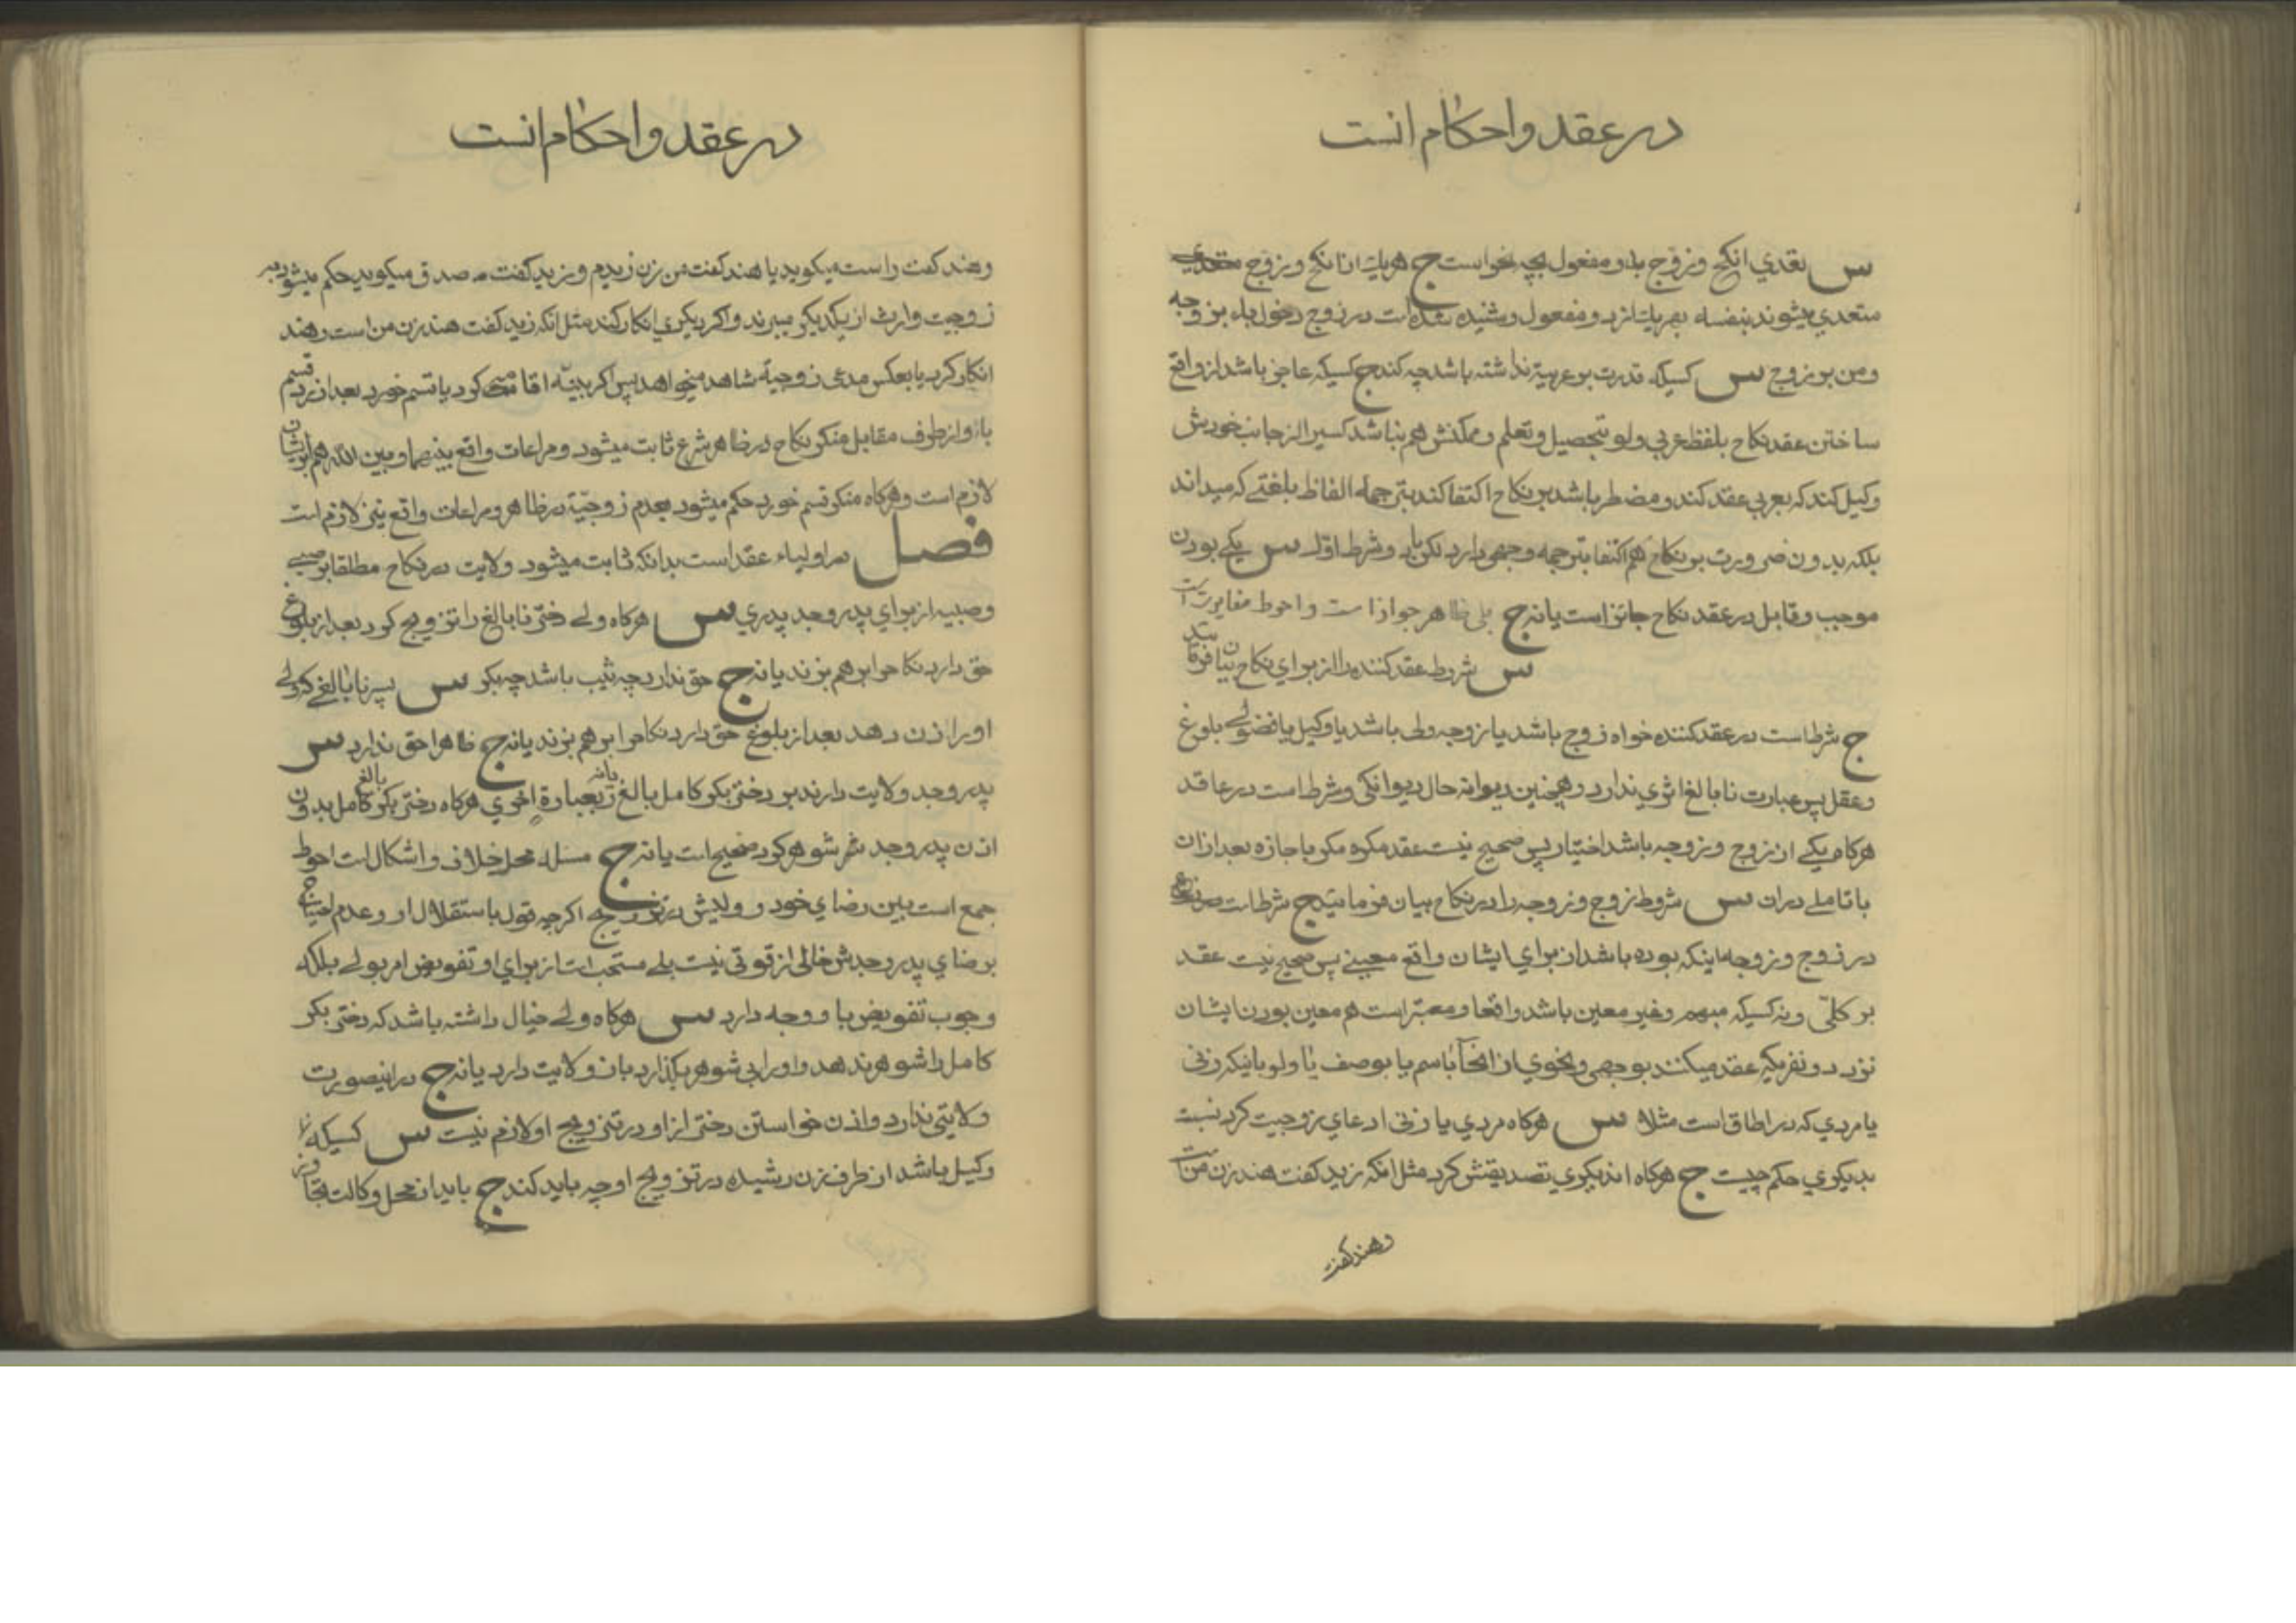 در عقد و احکام انست
س تعدي انکح و زوج بدو مفعول بچه نحواست ج هریک از انکح و زوج
متعدي میشوند بنفسه بهریک از دو مفعول و شنیده شده است در زوج دخول باء بر زوجه
و من بر زوج س کسیکه قدرت بر عربیة نداشته باشد چه کند ج کسیکه عاجز باشد از واقع
ساختن عقد نکاح بلفظ عربي ولو بتحصیل و تعلم و ممکنش هم نباشد کسیرا از جانب خودش
وکیل کند که بعربي عقد کند و مضطر باشد بر نکاح اکتفا کند بترجمهٔ الفاظ بلغتے که میداند
بلکه بدون ضرورت بر نکاح هم اکتفا بترجمه وجهي دارد لکن با رد و شرط اول س یکے بودن
موجب و قابل در عقد نکاح جائز است یا نه ج بلي ظاهر جواز است و احوط مغایرت است
س شروط عقد کننده را از براي نکاح بیان فرمائید
ج شرط است در عقد کننده خواه زوج باشد یا زوجه ولی باشد یا وکیل یا فضولے بلوغ
و عقل پس عبارت نابالغ اثري ندارد و همچنین دیوانه حال دیوانکی و شرط است در عاقد
هرکاه یکے از زوج و زوجه باشد اختیار پس صحیح نیست عقد مکره مکر باجازه بعد از ان
با تاملے در ان س شروط زوج و زوجه را در نکاح بیان فرمائید ج شرط است
در زوج و زوجه اینکه بوده باشد از براي ایشان واقع معینے پس صحیح نیت عقد
بر کلّي و نه کسیکه مبهم و غیر معین باشد واقعا و معتبر است هم معین بودن ایشان
نزد دو نفریکه عقد میکنند بوجهی و نحوي از انحآ باسم یا بوصف یا ولو باینکه زنی
یا مردي که در اطاق است مثلا س هرکاه مردي یا زنی ادعاي زوجیت کرد نسبت
بدیکري حکم چیست ج هرکاه اندیکري تصدیقش کرد مثل انکه زید کفت هند زن من است
و هند کفت
در عقد و احکام انست
و هند کفت راست میکوید یا هند کفت من زن زیدم و زید کفت صدق میکوید حکم میشود بر
زوجیت و ارث از یکدیکر میبرند و اکر دیکري انکار کند مثل انکه زید کفت هند زن من است و هند
انکار کرد یا بعکس مدعي زوجیة شاهد میخواهد پس اکر بینه اقامه کرد یا قسم خورد بعد از رد قسم
باو از طرف مقابل منکر نکاح در ظاهر شرع ثابت میشود و مراعات واقع بینهما و بین الله هم بر ایشان
لازم است و هرکاه منکر قسم خورد حکم میشود بعدم زوجیّة در ظاهر و مراعات واقع نیز لازم است
فصل در اولیاء عقد است بدانکه ثابت میشود ولایت در نکاح مطلقا بر صبے
و صبیه از براي پدر و جد پدري س هرکاه ولے دختر نابالغ را تزویج کرد بعد از بلوغ
حق دارد نکاح را برهم بزند یا نه ج حق ندارد چه ثیب باشد چه بکر س پسر نابالغے که ولے
او را زن دهد بعد از بلوغ حق دارد نکاح را برهم بزند یا نه ج ظاهرا حق ندارد س
پدر و جد ولایت دارند بر دختر بکر کامل بالغ یا نه بعبارة اخري هرکاه دختر بکر کامل بالغ بدون
اذن پدر و جد شر شوهر کرد صحیح است یا نه ج مسئله محل خلاف و اشکال است احوط
جمع است بین رضاي خود و ولیش در تزویج اکرچه قول باستقلال او و عدم احتیاج
برضاي پدر و جدش خالی از قوتی نیست بلے مستحب است از براي او تفویض امر بولے بلکه
وجوب تفویض با و وجه دارد س هرکاه ولے خیال داشته باشد که دختر بکر
کامل را شوهر ندهد و او را بی شوهر بکذارد بازو ولایت دارد یا نه ج در اینصورت
ولایتی ندارد و اذن خواستن دختر از او در تزویج او لازم نیست س کسیکه
وکیل باشد از طرف زن رشیده در تزویج او چه باید کند ج باید از محل وکالت تجاوز